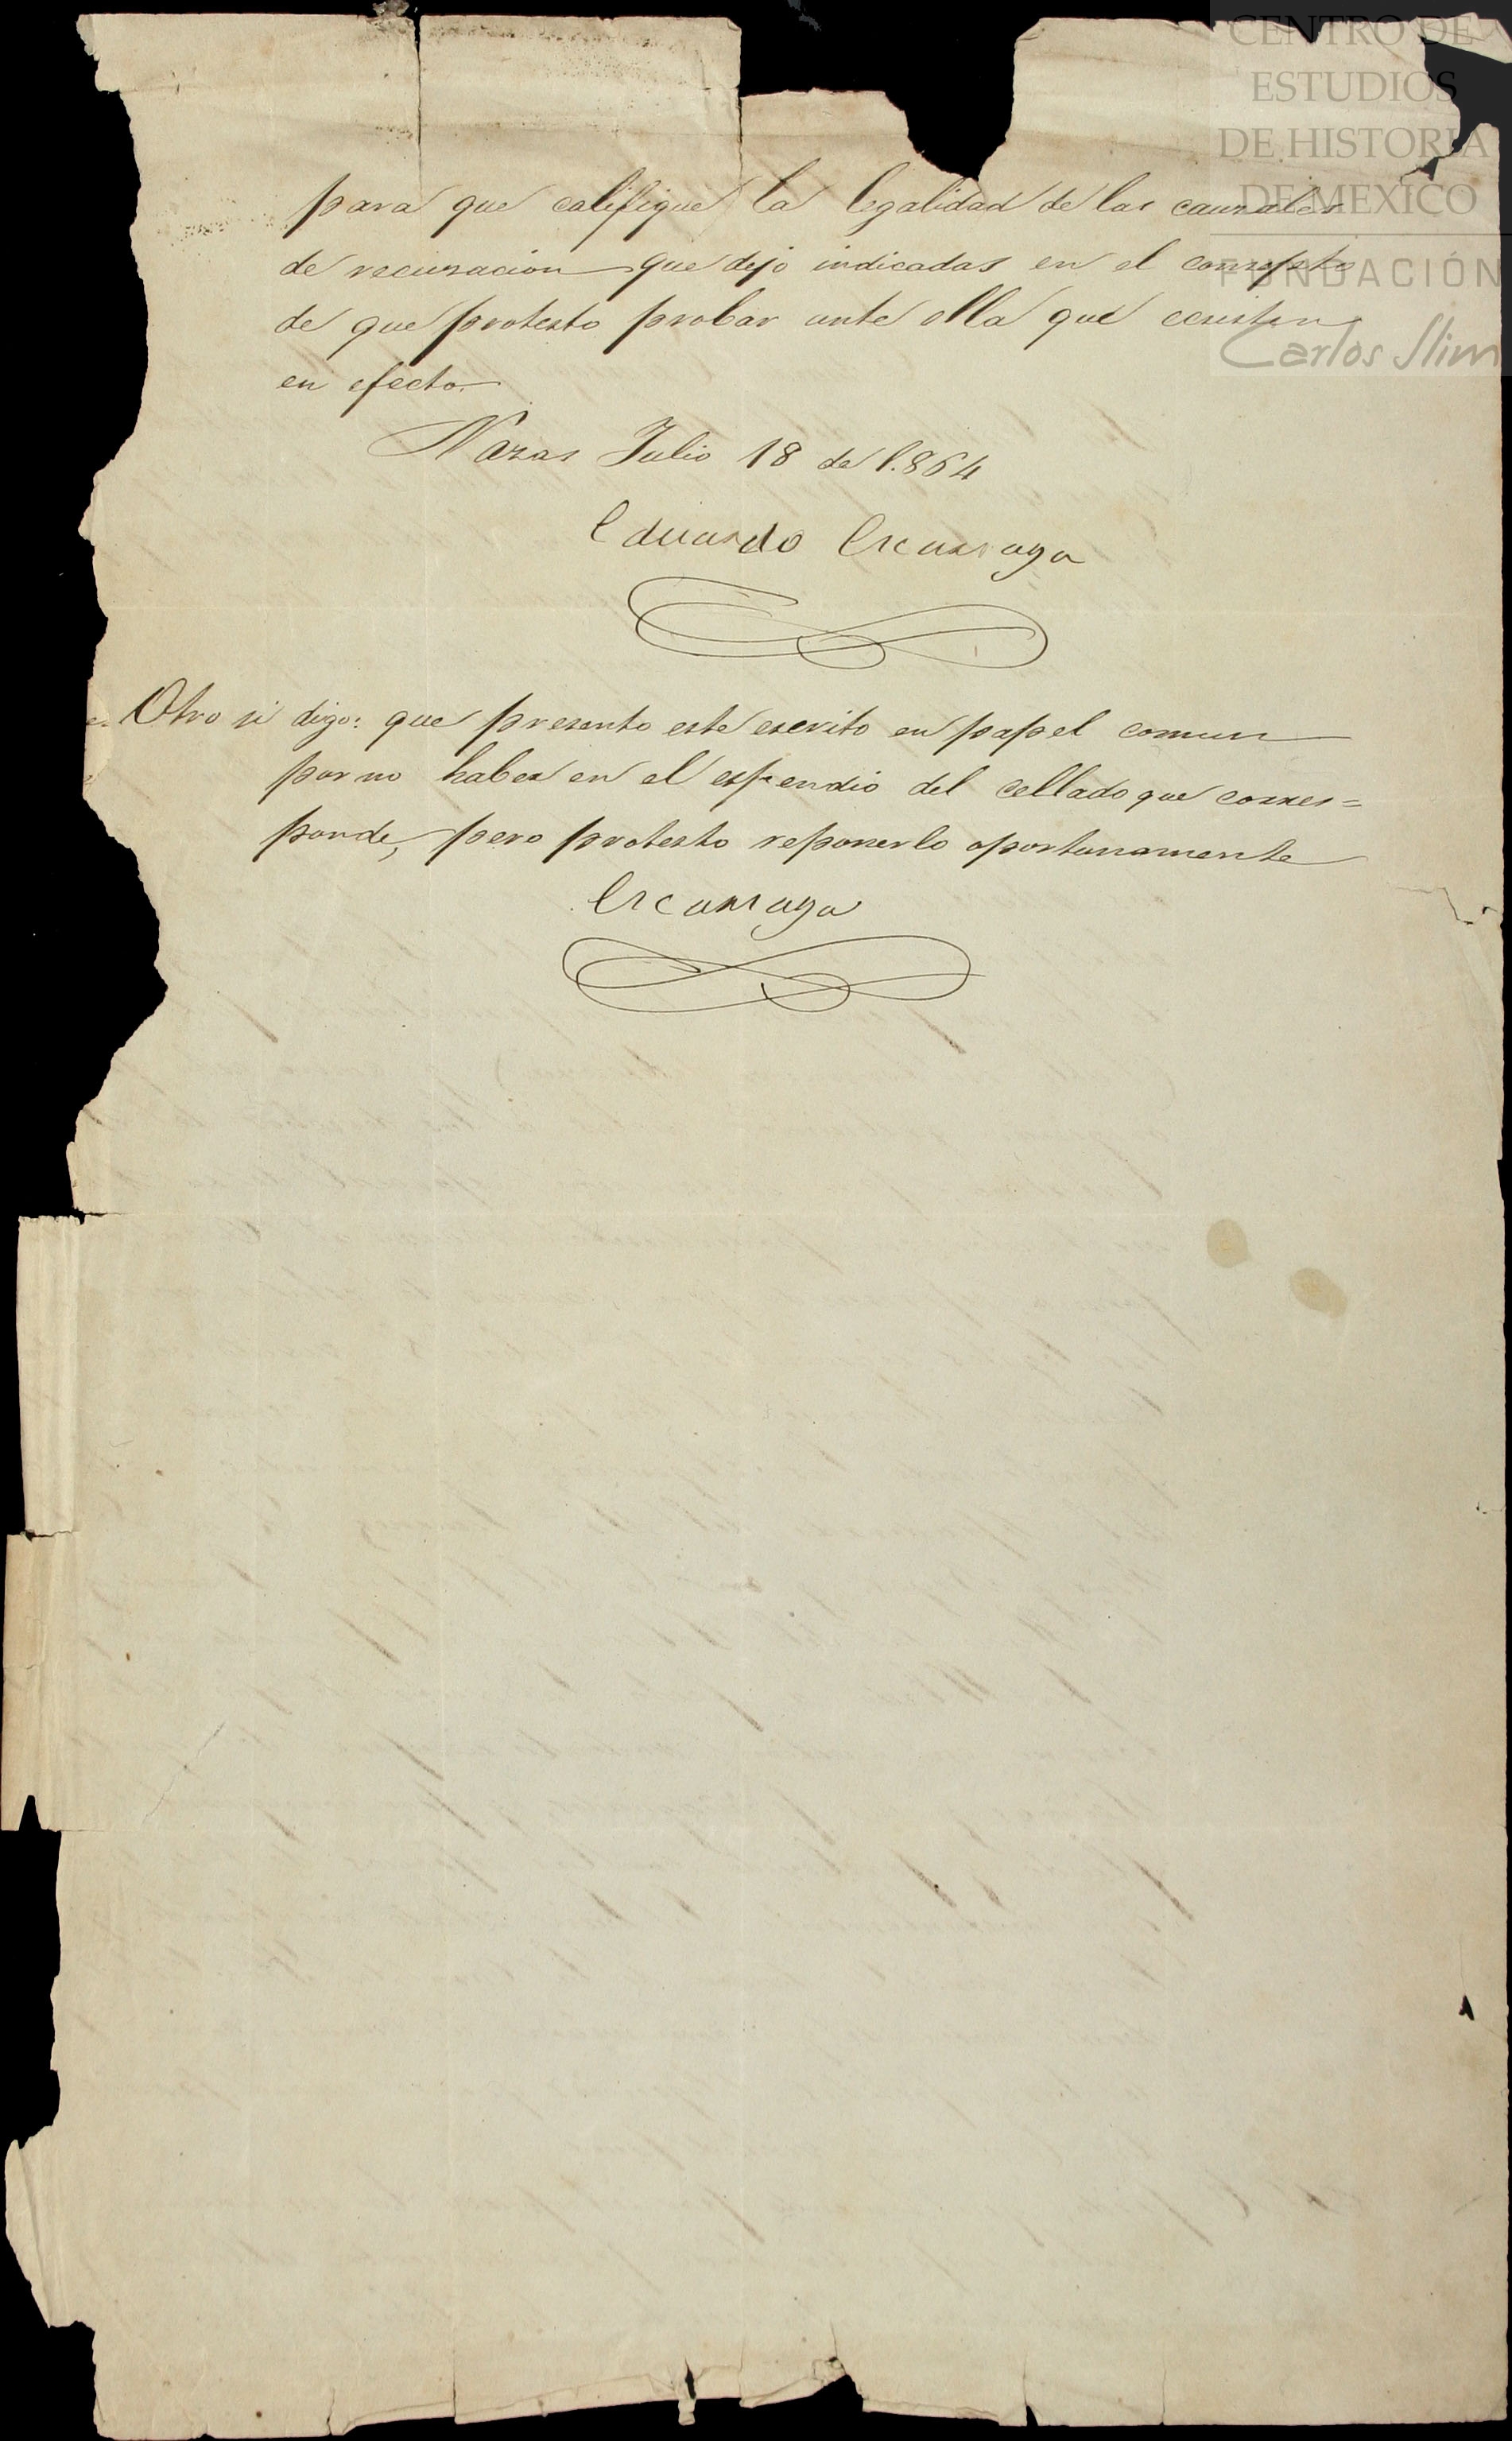 CENTRO DE
ESTUDIOS
DE HISTORIA
DE MEXICO
FUNDACIÓN
Carlos Slim
para que califique la legalidad de las causales
de recusacion que dejo indicadas en el concepto
de que protesto probar ante ella que ecsisten
en efecto.
Nazas Julio 18 de 1.864
Eduardo Escarzaga
Otro si digo: que presento este escrito en papel comun
por no haber en el espendio del cellado que corres=
ponde, pero protesto reponerlo oportunamente
Escarzaga